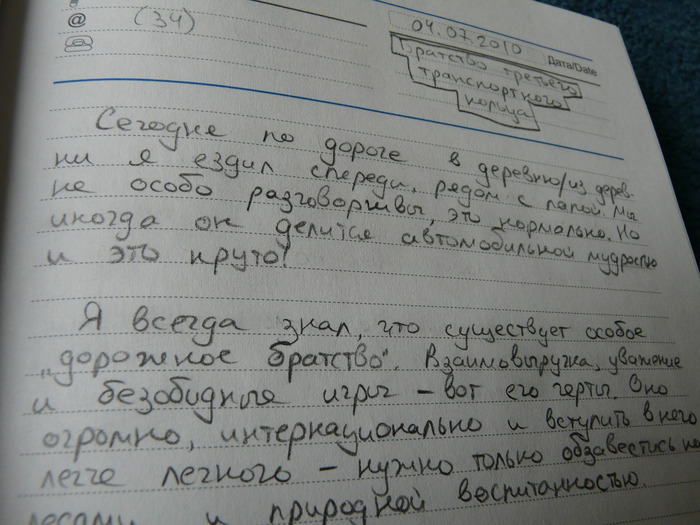 @ (34)
04.07.2010
Дата/Date
Братство третьего
транспортного
кольца
Сегодня по дороге в деревню/из дерев-
ни я ездил спереди, рядом с папой. Мы
не особо разговорчивы, это нормально. Но
иногда он делится автомобильной мудростью
и это круто!
Я всегда знал, что существует особое
„дорожное братство". Взаимовыручка, уважение
и безобидные игры – вот его черты. Оно
огромно, интернационально и вступить в него
легче легкого – нужно только обзавестись ко
лесами и природной воспитанностью.